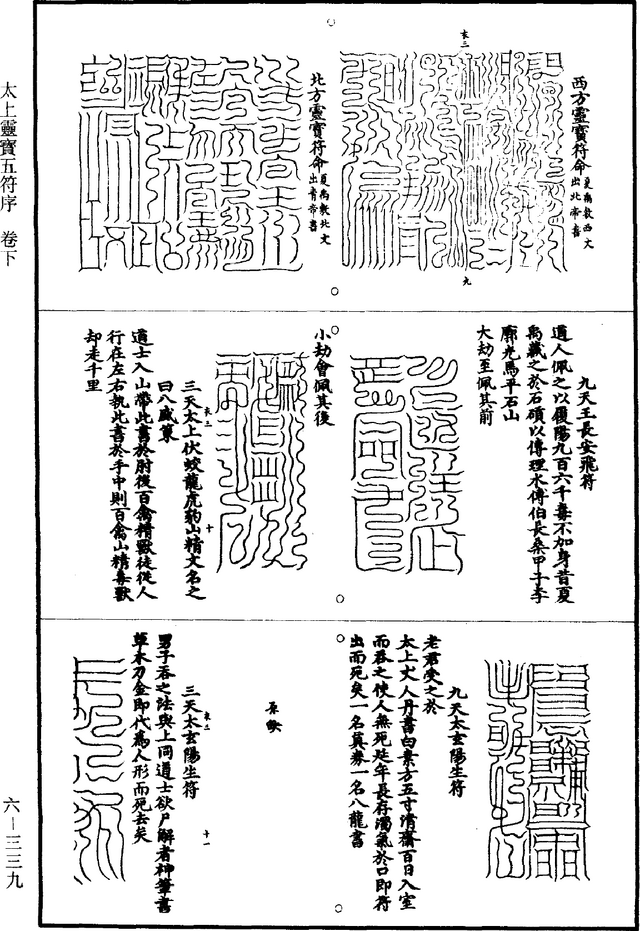 太上靈寶五符序　卷下
西方靈寶符命
夏禹敕西文
出北帝書
衣二
九
北方靈寶符命
夏禹敕北文
出青帝書
九天王長安飛符
道人佩之以履陽九百六千毒不加身昔夏
禹藏之於石碩以傳理水傳伯長桑甲子李
廓光馬平石山
大劫至佩其前
小劫會佩其後
衣二
十
三天太上伏蛟龍虎豹山精文名之
曰八威策
道士入山帶此書於肘後百禽精獸徒從人
行在左右執此書於手中則百禽山精毒獸
却走千里
九天太玄陽生符
老君受之於
太上丈人丹書白素方五寸清齋百日入室
而吞之使人無死延年長存濁氣於口即符
出而死矣一名莫券一名八龍書
原缺
衣二
十一
三天太玄陽生符
男子吞之法與上同道士欲尸解者神筆書
草木刀金即代為人形而死去矣
六—三三九